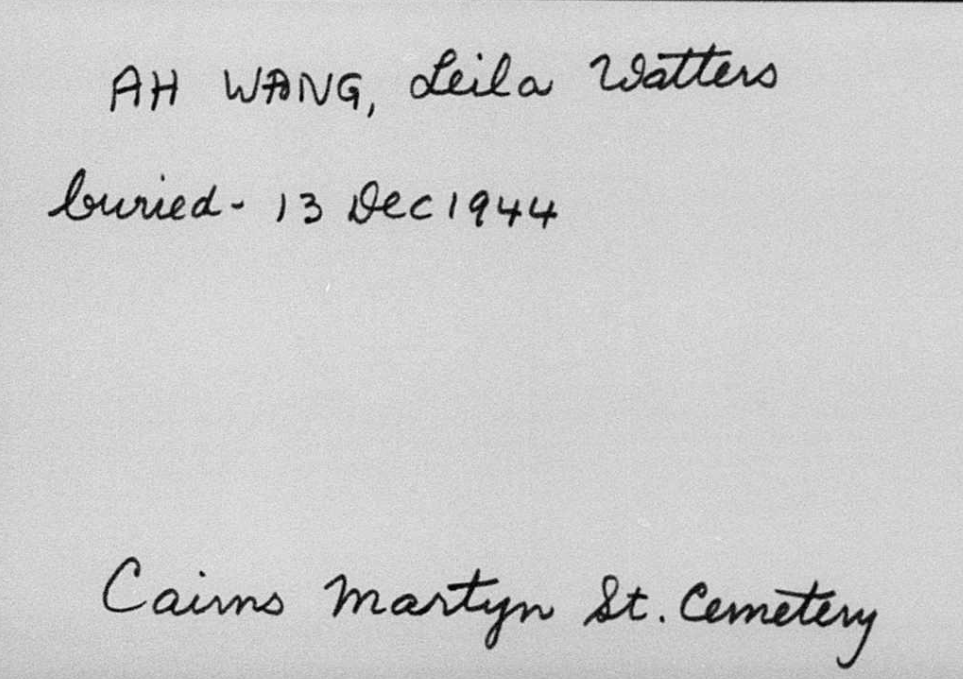 AH WANG, Leila Watters
buried - 13 Dec 1944
Cairns Martyn St. Cemetery